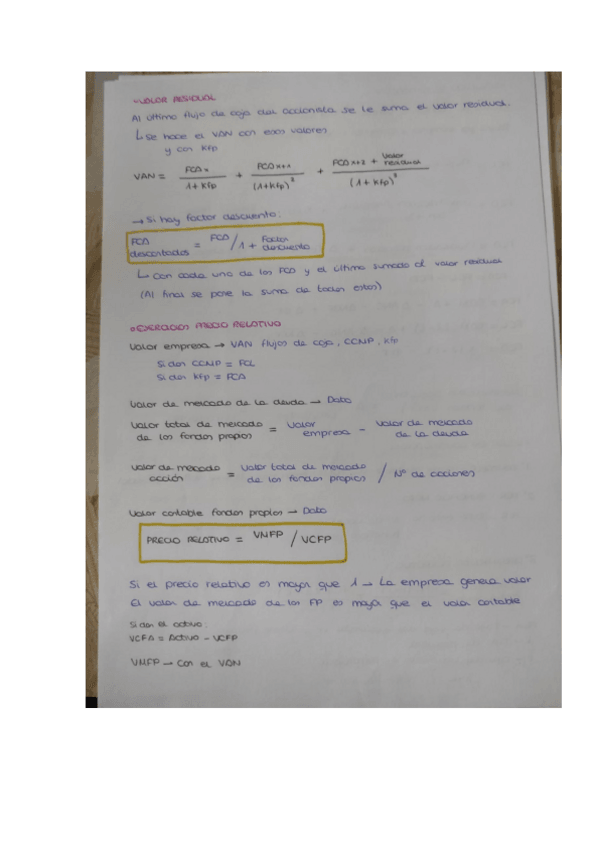 →VALOR RESIDUAL
Al último flujo de caja del accionista se le suma el valor residual.
↳ se hace el VAN con esos valores
y con Kfp
VAN = FCA x / 1+Kfp + FCA x+1 / (1+Kfp)² + FCA x+2 + Valor residual / (1+Kfp)³
→ Si hay factor descuento:
FCA descontados = FCA / 1 + Factor descuento
↳ Con cada uno de los FCA y el último sumado el valor residual
(Al final se pone la suma de todos estos)
EJERCICIOS PRECIO RELATIVO
Valor empresa → VAN flujos de caja, CCMP, Kfp
Si dan CCMP = FCL
Si dan Kfp = FCA
Valor de mercado de la deuda → Dato
Valor total de mercado de los fondos propios = Valor empresa - Valor de mercado de la deuda
Valor de mercado acción = Valor total de mercado de los fondos propios / Nº de acciones
Valor contable fondos propios → Dato
PRECIO RELATIVO = VMFP / VCFP
Si el precio relativo es mayor que 1 → La empresa genera valor
El valor de mercado de los FP es mayor que el valor contable
Si dan el activo:
= Activo - VCFP
VMFP → Con el VAN